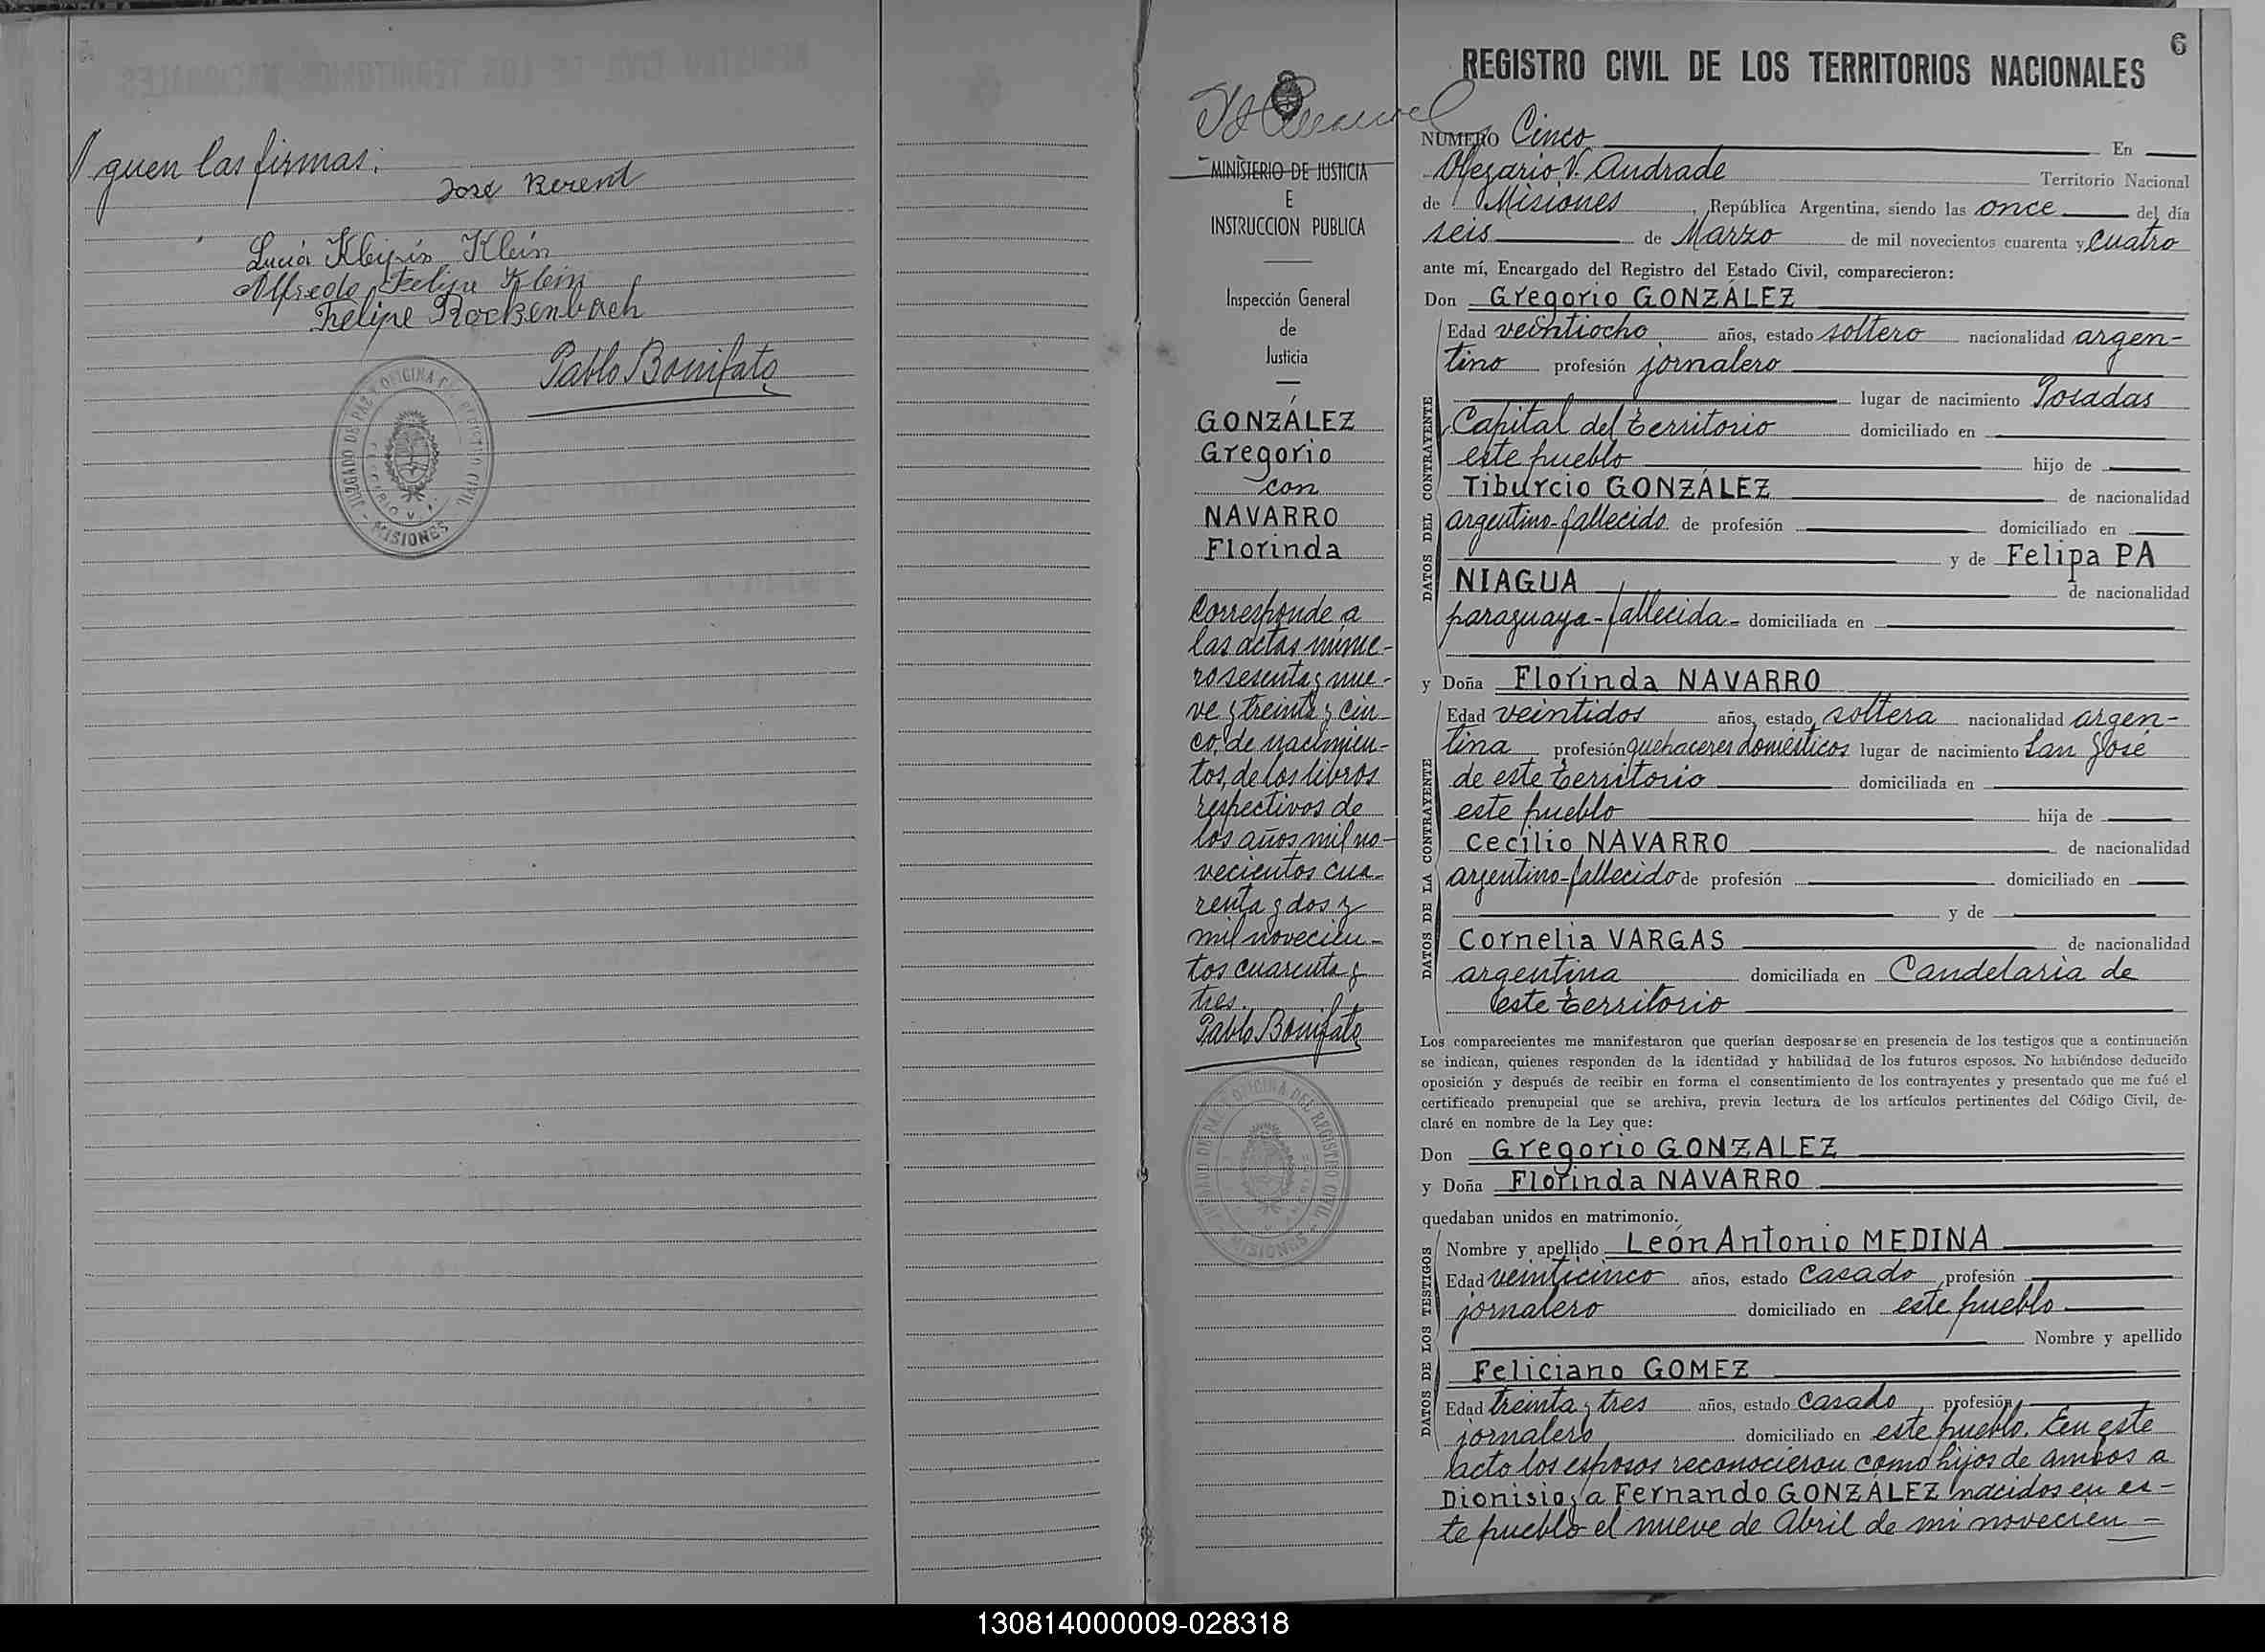 guen las firmas:
José Berend
Lucia Klein
Alfredo Felipe Klein
Felipe Rockenbach
Pablo Bonifato
JUZGADO DE PAZ Y OFICINA DEL REGISTRO CIVIL
MISIONES
6
REGISTRO CIVIL DE LOS TERRITORIOS NACIONALES
MINISTERIO DE JUSTICIA
E
INSTRUCCION PUBLICA
Inspección General
de
Justicia
GONZÁLEZ
Gregorio
con
NAVARRO
Florinda
Corresponde a
las actas núme-
ro sesenta y nue-
ve y treinta y cin-
co, de nacimien-
tos, de los libros
respectivos de
los años mil no-
vecientos cua-
renta y dos y
mil novecien-
tos cuarenta y
tres.
Pablo Bonifato
JUZGADO DE PAZ Y OFICINA DEL REGISTRO CIVIL
MISIONES
NUMERO Cinco En
Olegario V. Andrade Territorio Nacional
de Misiones, República Argentina, siendo las once del día
seis de Marzo de mil novecientos cuarenta y cuatro
ante mí, Encargado del Registro del Estado Civil, comparecieron:
Don Gregorio GONZÁLEZ
DATOS DEL CONTRAYENTE
Edad veintiocho años, estado soltero nacionalidad argen-
tino profesión jornalero
lugar de nacimiento Posadas
Capital del territorio domiciliado en
este pueblo hijo de
Tiburcio GONZÁLEZ de nacionalidad
argentino-fallecido de profesión domiciliado en
y de Felipa PA
NIAGUA de nacionalidad
paraguaya-fallecida- domiciliada en
y Doña Florinda NAVARRO
DATOS DE LA CONTRAYENTE
Edad veintidos años, estado soltera nacionalidad argen-
tina profesión quehaceres domésticos lugar de nacimiento San José
de este territorio domiciliada en
este pueblo hija de
Cecilio NAVARRO de nacionalidad
argentino-fallecido de profesión domiciliado en
y de
Cornelia VARGAS de nacionalidad
argentina domiciliada en Candelaria de
este territorio
Los comparecientes me manifestaron que querían desposarse en presencia de los testigos que a continuación
se indican, quienes responden de la identidad y habilidad de los futuros esposos. No habiéndose deducido
oposición y después de recibir en forma el consentimiento de los contrayentes y presentado que me fué el
certificado prenupcial que se archiva, previa lectura de los artículos pertinentes del Código Civil, de-
claré en nombre de la Ley que:
Don Gregorio GONZALEZ
y Doña Florinda NAVARRO
quedaban unidos en matrimonio.
DATOS DE LOS TESTIGOS
Nombre y apellido León Antonio MEDINA
Edad veinticinco años, estado casado profesión
jornalero domiciliado en este pueblo
Nombre y apellido
Feliciano GOMEZ
Edad treinta y tres años, estado casado, profesión
jornalero domiciliado en este pueblo. En este
acto los esposos reconocieron como hijos de ambos a
Dionisio y a Fernando GONZÁLEZ nacidos en es-
te pueblo el nueve de Abril de mi novecien-
130814000009-028318